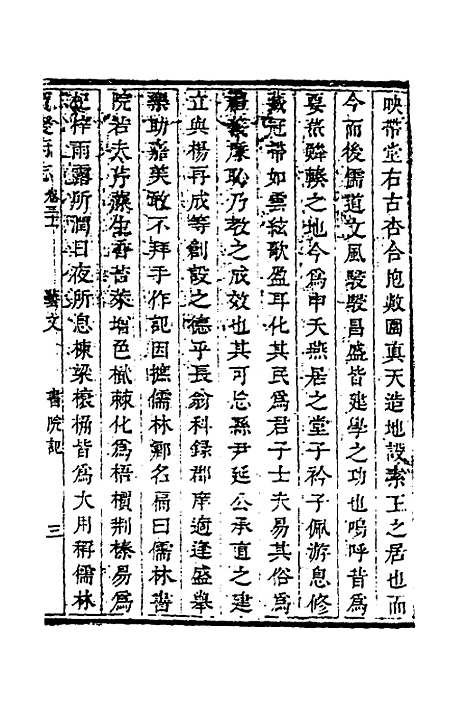 映帶堂右古杏合抱數圍真天造地設素王之居也而
今而後儒道文風駸駸昌盛皆建學之功也嗚呼昔為
宴燕歸輳之地今為申天燕居之堂子衿子佩游息修
藏冠帶如雲絃歌盈耳化其民為君子士夫易其俗為
禮義廉恥乃教之成效也其可忘孫尹延公承直之建
立與楊再成等創設之德乎長翁科錄郡庠適逢盛舉
樂助嘉美敢不拜手作記因摭儒林鄉名扁曰儒林書
院若夫芹藻生香苔萊增色棫棘化為梧檟荆榛易為
杞梓雨露所潤日夜所息棟梁榱桷皆為大用稱儒林
卷三十
藝文
書院記
三